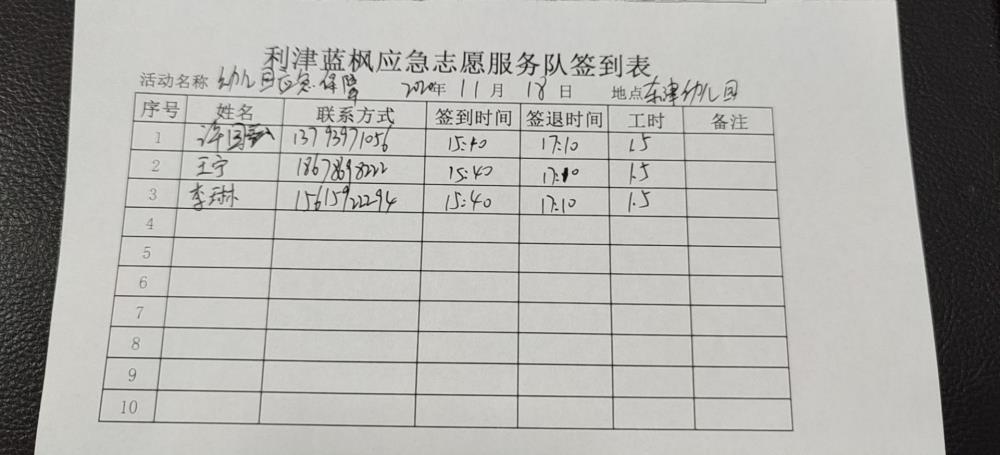 利津蓝枫应急志愿服务队签到表
活动名称 幼儿园应急保障 2020年 11月 18日 地点 东津幼儿园
序号 姓名 联系方式 签到时间 签退时间 工时 备注
1 许国 13793971056 15:40 17:10 1.5
2 王宁 18678698222 15:40 17:10 1.5
3 李琳 15615922294 15:40 17:10 1.5
4
5
6
7
8
9
10